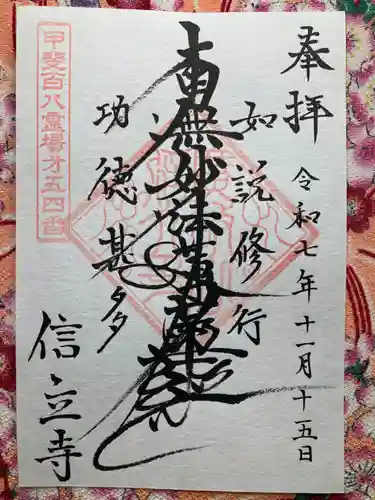 奉拝
令和七年十一月十五日
如説修行
南無妙法蓮華経
功徳甚多
甲斐百八霊場才五四番
信立寺